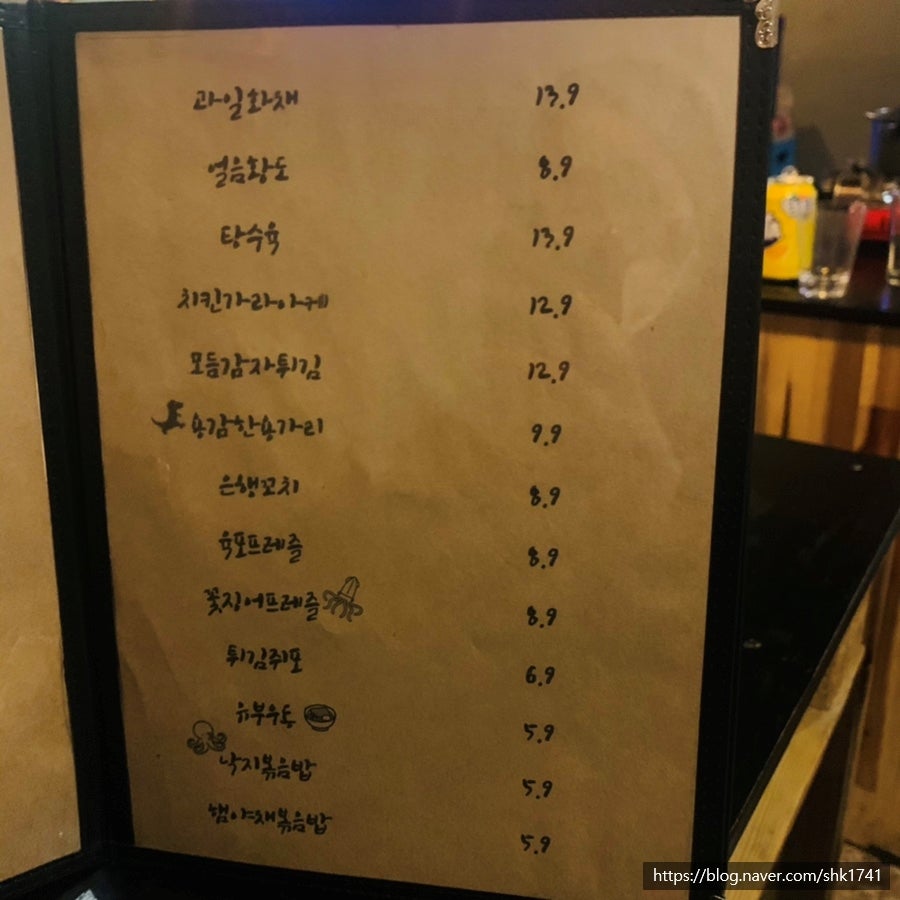 과일화채 13.9
얼음황도 8.9
탕수육 13.9
치킨가라아게 12.9
모듬감자튀김 12.9
용감한용가리 9.9
은행꼬치 8.9
육포프레즐 8.9
꽃징어프레즐 8.9
튀김쥐포 6.9
유부우동 5.9
낙지볶음밥 5.9
햄야채볶음밥 5.9
https://blog.naver.com/shk1741